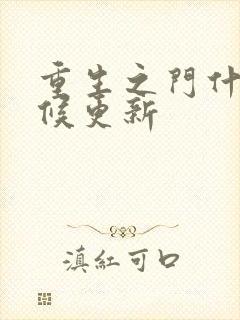 重生之門什
候更新
滇紅可口